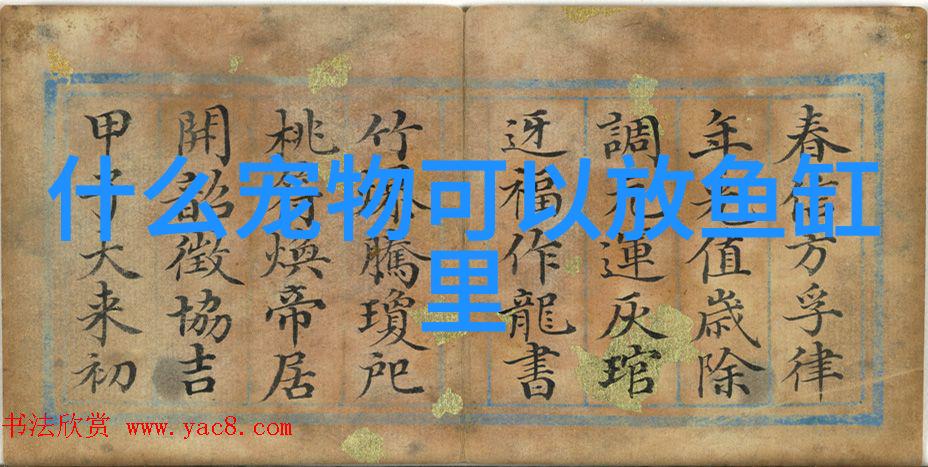 什么宠物可以放鱼缸
里
春信方孚律
年光值歲除
調元運灰琯
迓福作龍書
竹騰瓊
桃符煥帝居
開韶徵協吉
甲子大来初
书法欣赏 www.yac8.com